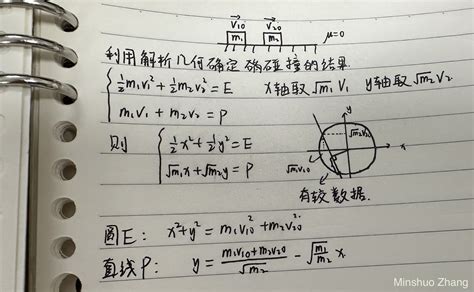 v₁₀ v₂₀
m₁ m₂ μ=0
利用解析几何确定碰撞的结果
½m₁v₁²+½m₂v₂²=E x轴取√m₁V₁ y轴取√m₂V₂
m₁v₁+m₂v₂=P
则 ½x²+½y²=E
√m₁x+√m₂y=P
y
√m₂V₂₀
x
√m₁V₁₀
有较数据.
圆E: x²+y²=m₁v₁₀²+m₂v₂₀²
直线P: y=(m₁v₁₀+m₂v₂₀)/√m₂-√(m₁/m₂)x
Minshuo Zhang